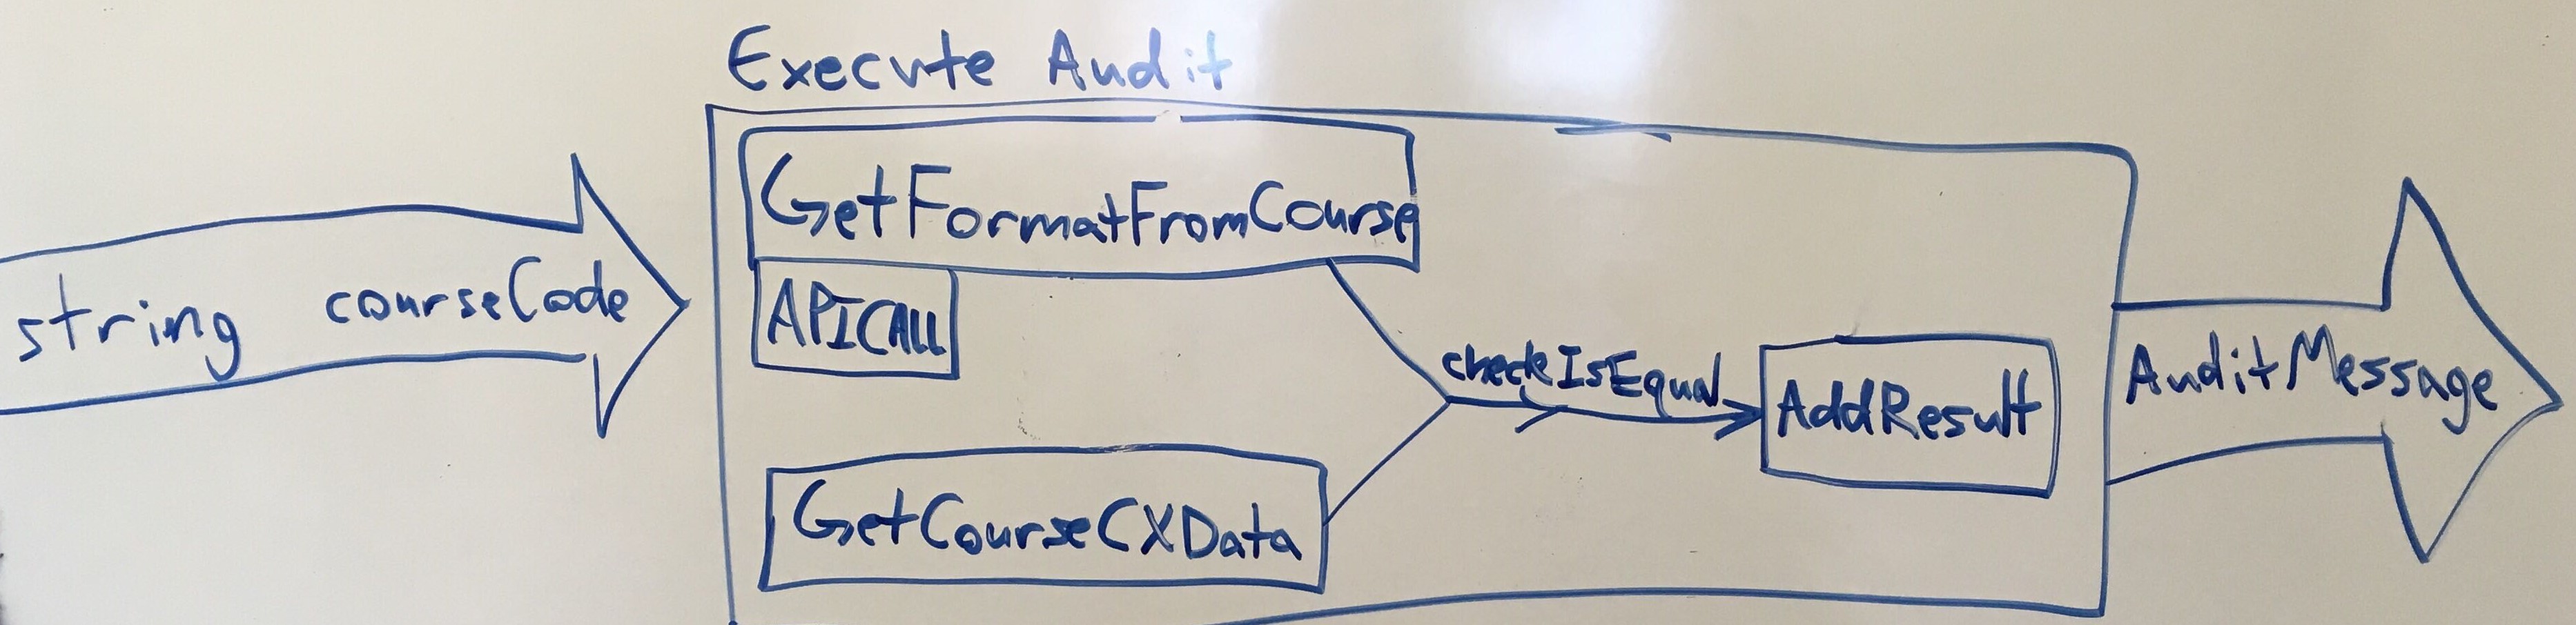 Execute Audit
string courseCode
GetFormatFromCourse
APICALL
GetCourseCXData
checkIsEqual
AddResult
AuditMessage